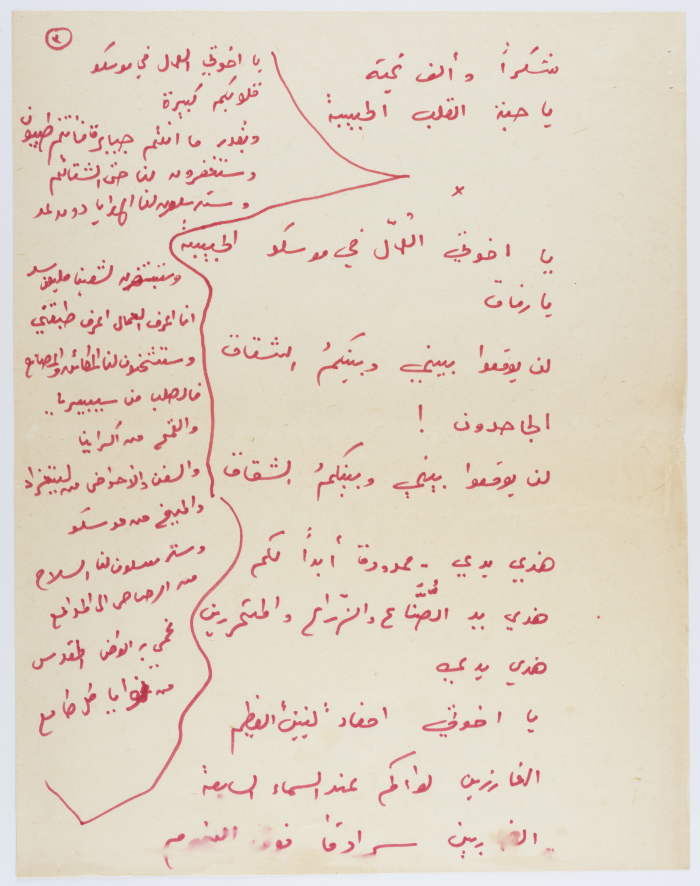 ٣
شكراً وألف تحية
يا حبة القلب الحبيبة
×
يا اخوتي العُمّال في موسكو الحبيبة
يا رفاق
لن يوقعوا بيني وبينكمُ الشقاق
الجاحدون !
لن يوقعوا بيني وبينكمُ الشقاق
هذي يدي - ممدودة أبداً لكم
هذي يد الصُّنَّاع والزّراع والمثمرين
هذي يدي
يا اخوتي احفاد لينينَ العظيم
الغارزين لواكم عند السماء السابعة
سرادقاً فوق النجوم
يا اخوتي العمال في موسكو
قلوبكم كبيرة
وبقدر ما انتم جبابرة فأنتم طيبون
وستغفرون لنا حتى الشتائم
وسترسلون لنا الهوايا دون
انا اعرف العمال اعرف طبقتي
وستشحنون لنا المكائن والمصانع
فالصلب من سيبيريا
والقمح من اكرانيا
والسفن والاحواض من ليننغراد
من موسكو
وسترسلون لنا السلاح
من الرصاص الى المدافع
نحمي به الوطن المقدس
من نوايا كل طامع